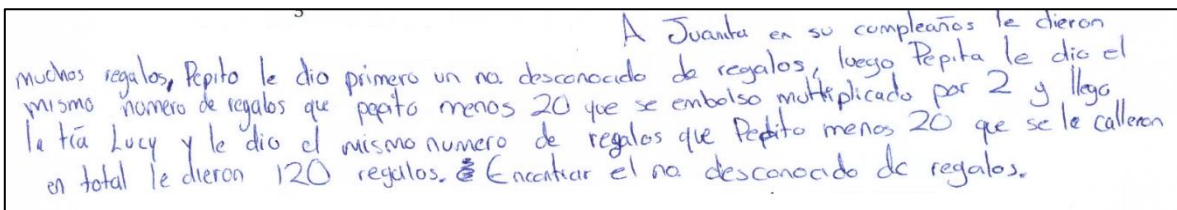 A Juanita en su compleaños le dieron
muchos regalos, Pepito le dio primero un no. desconocido de regalos, luego Pepita le dio el
mismo numero de regalos que pepito menos 20 que se embolso multiplicado por 2 y llego
la tía Lucy y le dio el mismo numero de regalos que Pepito menos 20 que se le calleron
en total le dieron 120 regalos. Encontrar el no. desconocido de regalos.